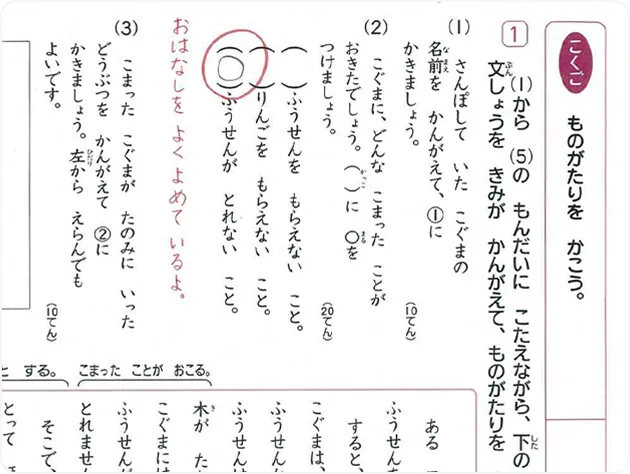 こくご
ものがたりを かこう。
1
(1)から (5)の もんだいに こたえながら、下の
文しょうを きみが かんがえて、ものがたりを
(1) さんぽして いた こぐまの
名前を かんがえて、①に
かきましょう。
(10てん)
(2) こぐまに、どんな こまった ことが
おきたでしょう。( )に ○を
つけましょう。
(20てん)
( )ふうせんを もらえない こと。
( )りんごを もらえない こと。
(○)ふうせんが とれない こと。
おはなしを よく よめて いるよ。
(3) こまった こぐまが たのみに いった
どうぶつを かんがえて ②に
かきましょう。左から えらんでも
よいです。
(10てん)
こまった ことが おこる。
と する。
ある
ふうせん
すると、
こぐまは、
ふうせんが
ふうせんは
木が た
こぐまには
ふうせんが
とれません
そこで、
とって